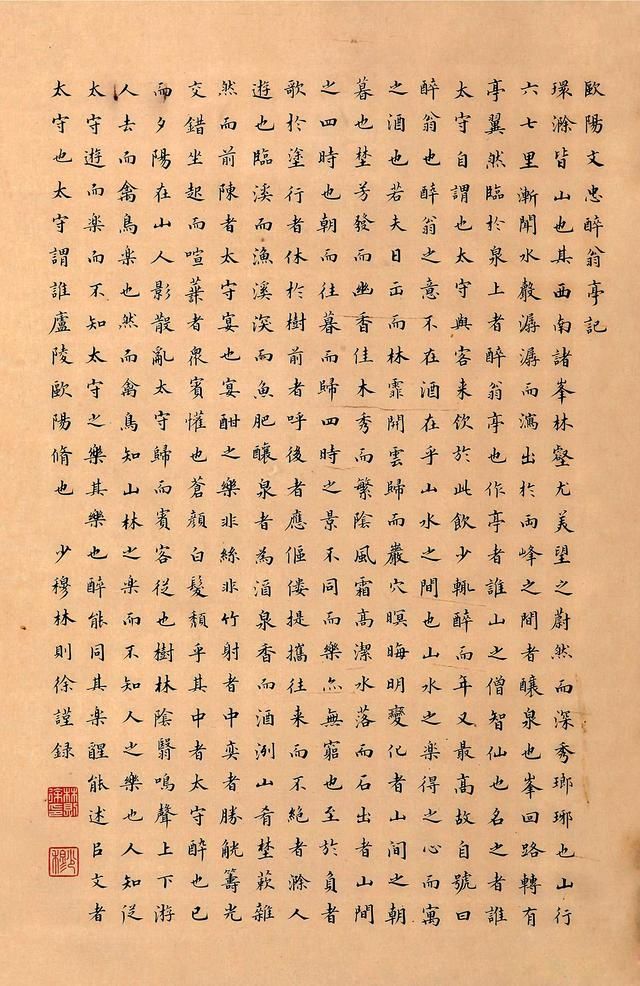 歐陽文忠醉翁亭記
環滁皆山也其西南諸峯林壑尤美望之蔚然而深秀瑯琊也山行
六七里漸聞水聲潺潺而瀉出於兩峰之間者釀泉也峯回路轉有
亭翼然臨於泉上者醉翁亭也作亭者誰山之僧智仙也名之者誰
太守自謂也太守與客来飲於此飲少輒醉而年又最高故自號曰
醉翁也醉翁之意不在酒在乎山水之間也山水之楽得之心而寓
之酒也若夫日出而林霏開雲歸而巖穴暝晦明變化者山間之朝
暮也埜芳發而幽香佳木秀而繁陰風霜高潔水落而石出者山間
之四時也朝而往暮而歸四時之景不同而樂亦無窮也至於負者
歌於塗行者休於樹前者呼後者應傴僂提攜往来而不絶者滁人
遊也臨溪而漁溪深而魚肥釀泉者為酒泉香而酒洌山肴埜蔌雜
然而前陳者太守宴也宴酣之樂非絲非竹射者中奕者勝觥籌光
交錯坐起而喧嘩者衆賓懽也蒼顔白髮頹乎其中者太守醉也已
而夕陽在山人影散亂太守歸而賓客從也樹林陰翳鳴聲上下游
人去而禽鳥楽也然而禽鳥知山林之楽而不知人之樂也人知從
太守遊而楽而不知太守之樂其樂也醉能同其楽醒能述㠯文者
太守也太守謂誰廬陵歐陽脩也 少穆林則徐謹録
林則徐印
少穆